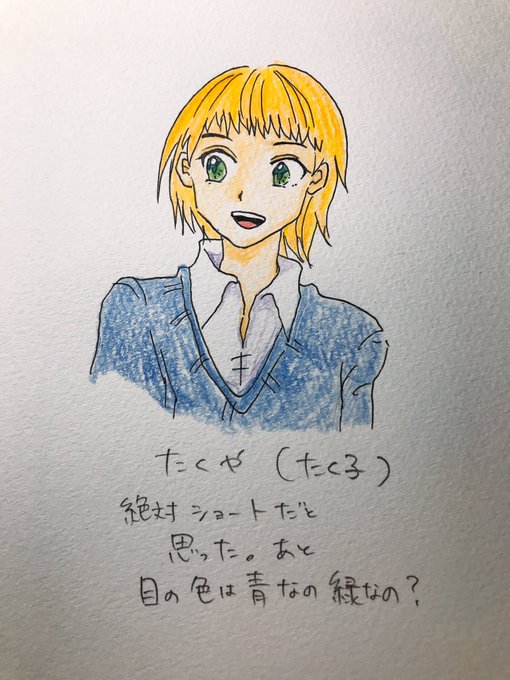 たくや（たく子）
絶対ショートだと
思った。あと
目の色は青なの緑なの？